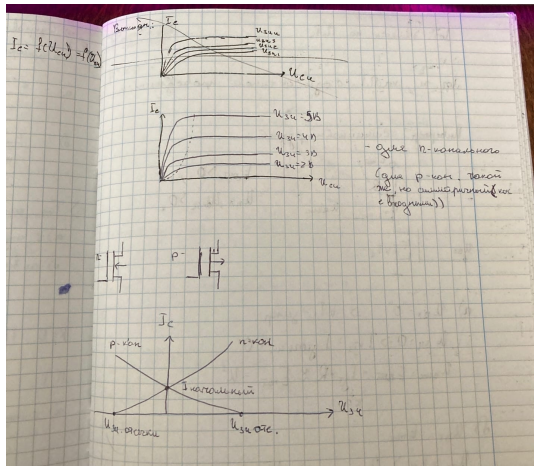 I_c = f(U_си) = f(U_зи)
Выходн.
I_c
U_зи4
U_зи3
U_зи2
U_зи1
U_си
I_c
U_зи = 5В
U_зи = 4В
U_зи = 3В
U_зи = 2В
U_си
- для n-канального
(для p-кан. такой
же, но симметричный (как
с входными))
n-
p-
I_c
p-кан
n-кан
I начальный
U_зи
U_зи отсечки
U_зи отс.